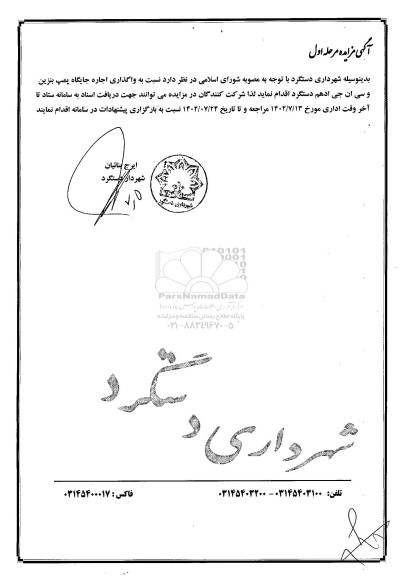 آگهی مزایده مرحله اول
بدینوسیله شهرداری دستگرد با توجه به مصوبه شورای اسلامی در نظر دارد نسبت به واگذاری اجاره جایگاه پمپ بنزین
و سی ان جی ادهم دستگرد اقدام نماید لذا شرکت کنندگان در مزایده می توانند جهت دریافت اسناد به سامانه ستاد تا
آخر وقت اداری مورخ ۱۴۰۲/۷/۱۳ مراجعه و تا تاریخ ۱۴۰۲/۰۷/۲۴ نسبت به بارگزاری پیشنهادات در سامانه اقدام نمایند
ایرج مانیان
شهردار دستگرد
شهرداری دستگرد
ParsNamadData
پایگاه اطلاع رسانی مناقصه و مزایده
۰۲۱-۸۸۳۴۹۶۷۰-۵
شهرداری دستگرد
تلفن: ۰۳۱۴۵۴۰۳۱۰۰ - ۰۳۱۴۵۴۰۳۲۰۰ فاکس: ۰۳۱۴۵۴۰۰۰۱۷